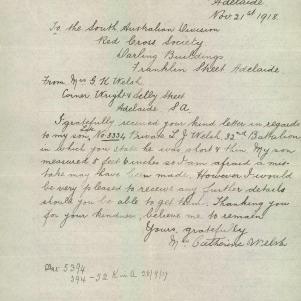 Adelaide
Nov 21st 1918.
To the South Australian Division
Red Cross Society
Darling Buildings
Franklin Street Adelaide
From Mrs G K Welsh
Corner Wright & Selly Street
Adelaide S.A.
I gratefully received your kind letter in regards
to my son, No 3334, Private L. J. Welsh, 32nd Battalion
in which you state he was short & thin My son
measures 5 feet 6 inches so I am afraid a mis-
take may have been made. However I would
be very pleased to receive any further details
should you be able to get them. Thanking you
for your kindness, believe me to remain
Yours, gratefully
Mrs Catherine Welsh
5394
394 - 32 K in A 28/9/17